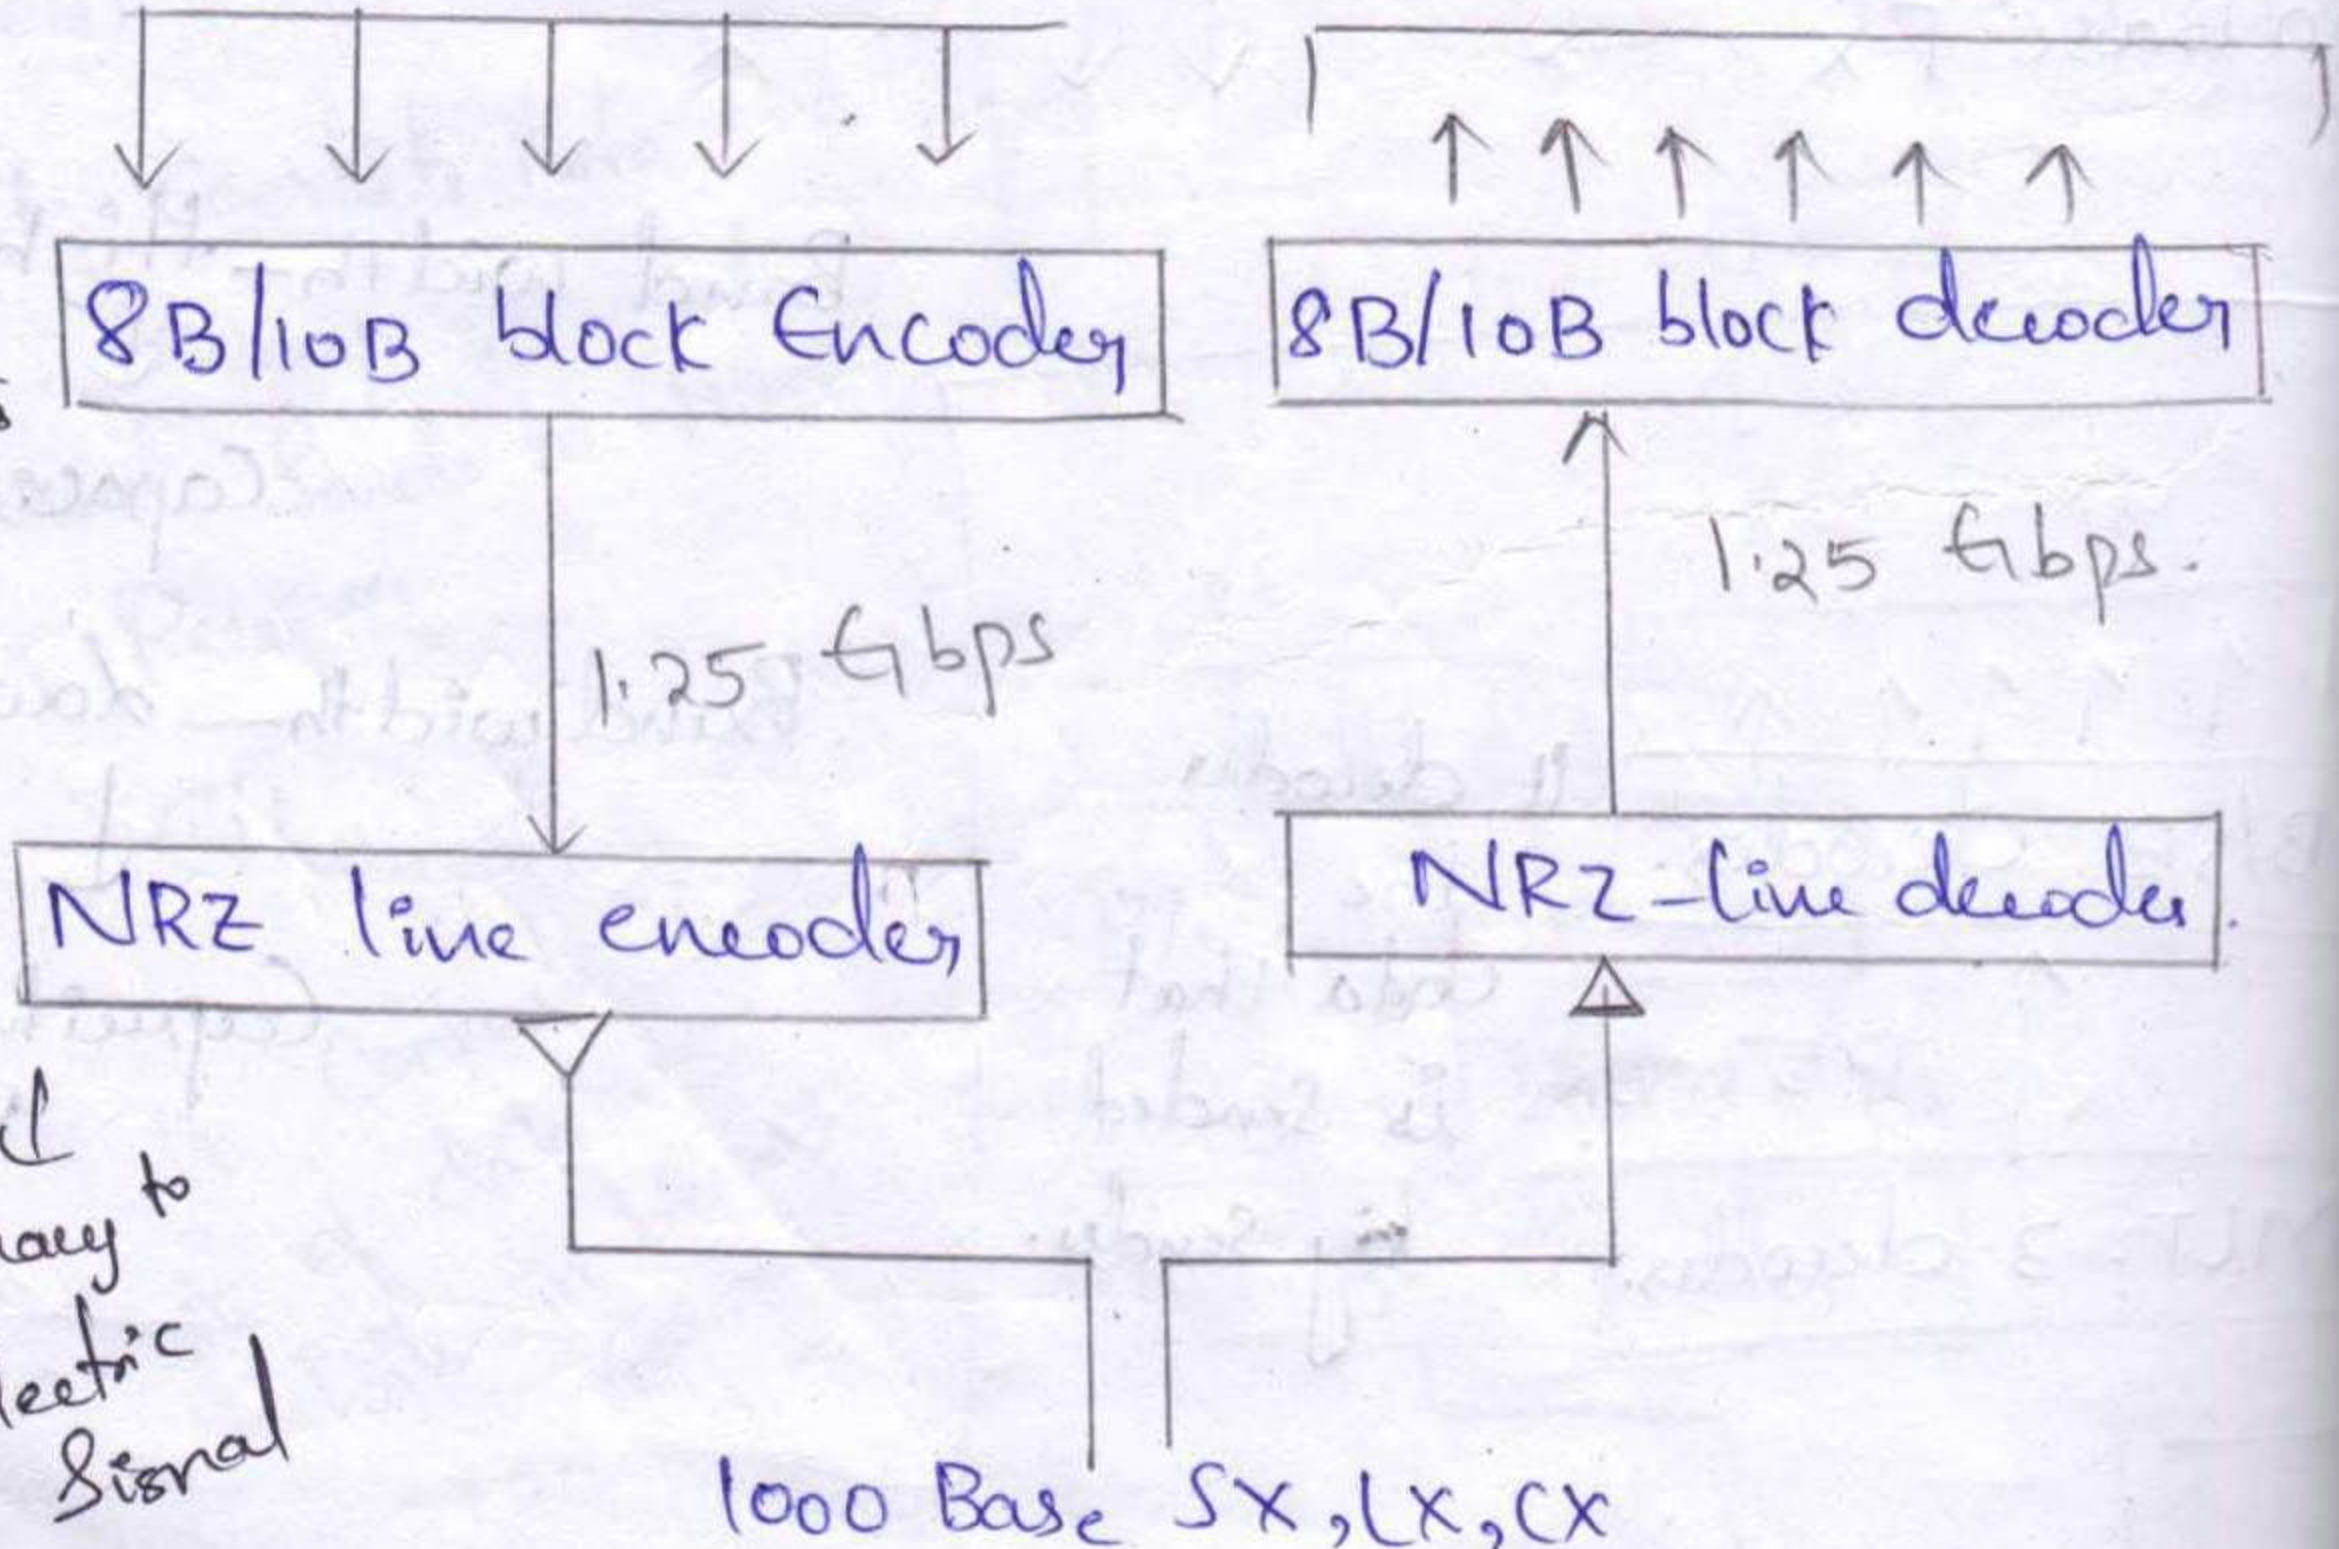 8B/10B block Encoder
8B/10B block decoder
1.25 Gbps
1.25 Gbps.
NRZ line encoder
NRZ-line decoder.
to
Signal
1000 Base SX, LX, CX